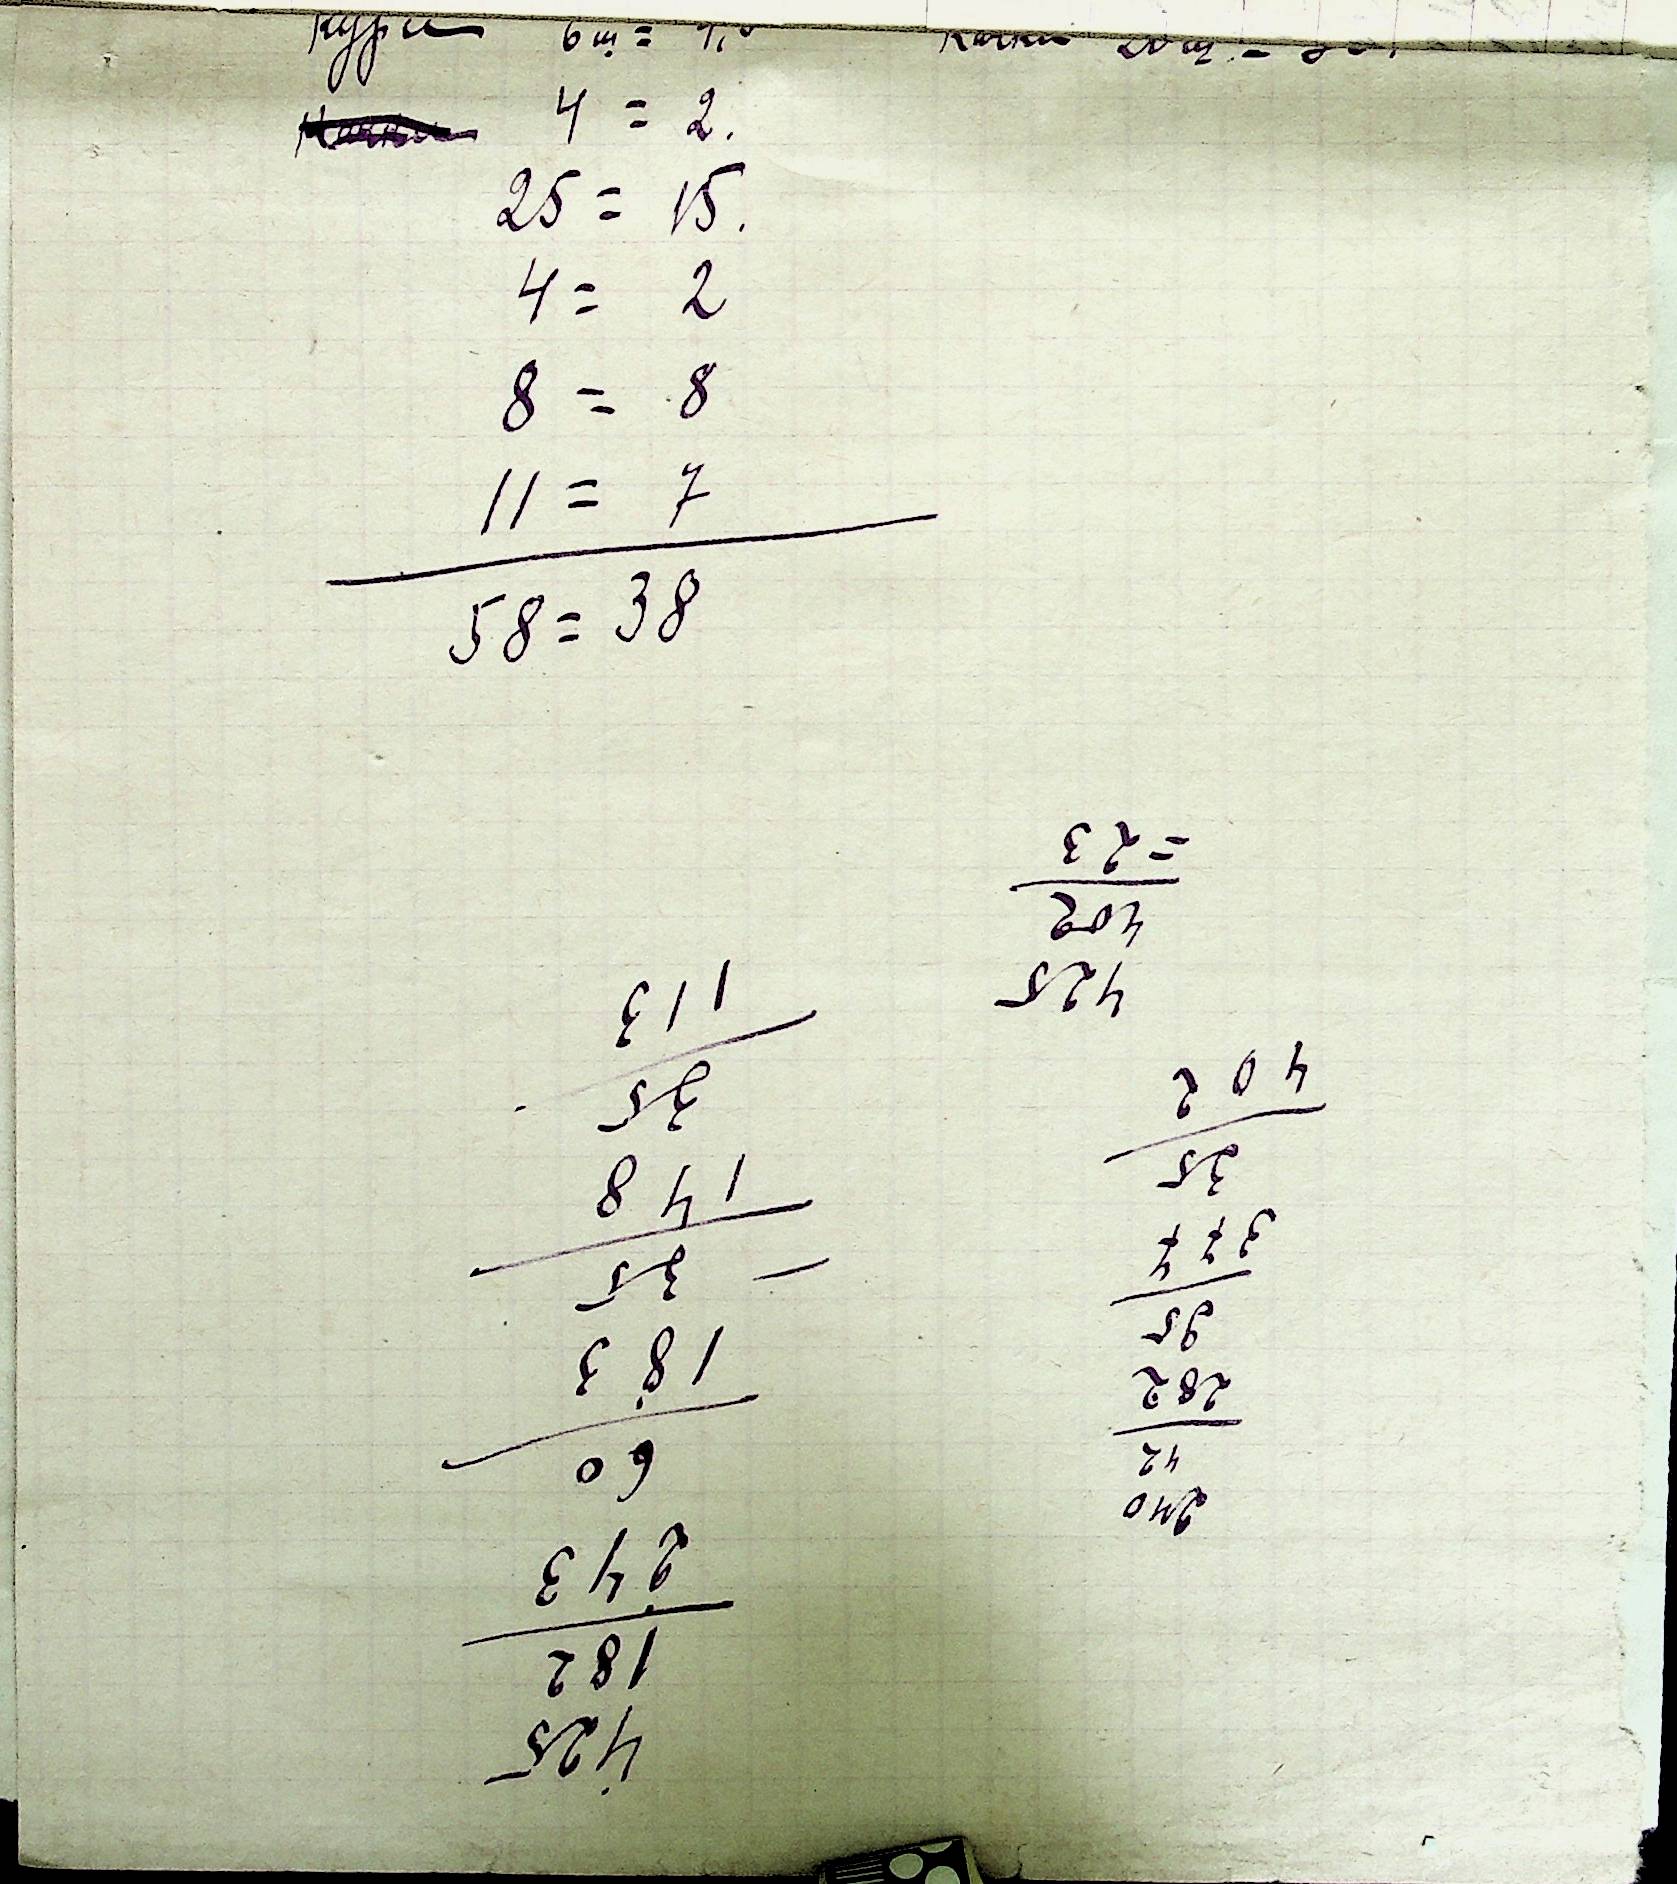 Кури 6 ш =
Качки 20 ш. =
4 = 2.
25 = 15.
4 = 2
8 = 8
11 = 7
58 = 38
425
182
243
60
183
35 –
148
35
113
240
42
282
95
377
25
402
425
402
= 23